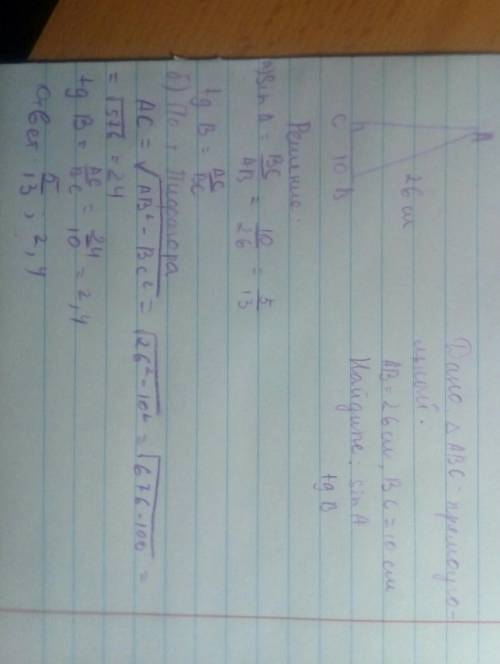 Дано: △ABC - прямоуго-
льный.
AB = 26 см, BC = 10 см
Найдите: sin A
tg B
A
26 см
C 10 B
Решение:
а) sin A = BC/AB = 10/26 = 5/13
tg B = AC/BC
б) По т Пифагора
AC = √AB² - BC² = √26² - 10² = √676 - 100 =
= √576 = 24
tg B = AC/BC = 24/10 = 2,4
Ответ: 5/13 ; 2,4